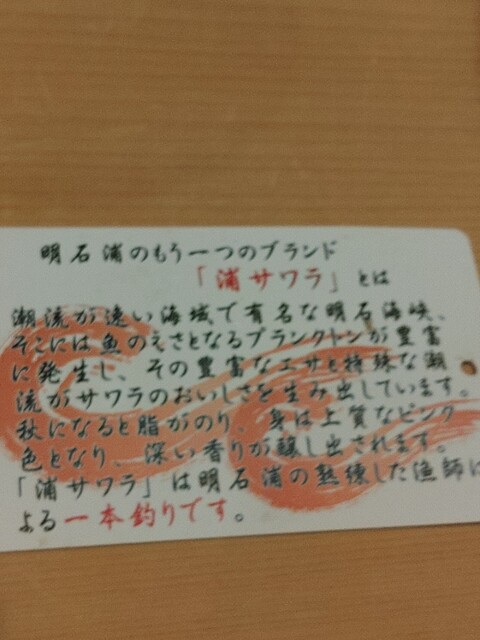 明石浦のもう一つのブランド
「浦サワラ」とは
潮流が速い海域で有名な明石海峡、
そこには魚のえさとなるプランクトンが豊富
に発生し、その豊富なエサと特殊な潮
流がサワラのおいしさを生み出しています。
秋になると脂がのり、身は上質なピンク
色となり、深い香りが醸し出されます。
「浦サワラ」は明石浦の熟練した漁師に
よる一本釣りです。